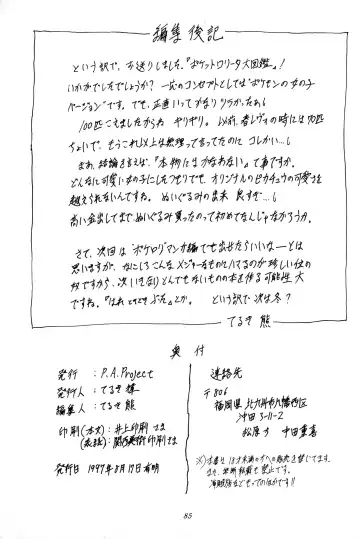 編集後記
という訳で、お送りしました、『ポケットロリータ大図鑑』！
いかがでしたでしょうか？ 一応のコンセプトとしては"ポケモンの女の子
バージョン"です。でも、正直いってかなりツラかったぁ。
100匹こえましたからね ギリギリ。以前、春レヴィの時には70匹
ちょいで、もうこれ以上は無理って言ってたのに コレかい…。
まぁ、結論を言えば、『本物にはかなわない』って事ですか。
どんなに可愛い女の子にしたつもりでも、オリジナルのピカチュウの可愛さを
超えられないんですね。ぬいぐるみの出来 良すぎ…。
高い金出してまでぬいぐるみ買ったのって初めてなんじゃなかろうか。
さて、次回は"ポケロリ"マンガ編でも出せたらいいなーとは
思いますが、なにしろこんなメジャーなものにハマるのが珍しい位の
奴ですから、次いきなりとんでもないものの本を作る可能性 大
ですね。という訳で次は冬？
てるき熊
奥付
発行：P.A.Project
発行人：てるき
編集人：てるき熊
印刷（本文）：井上印刷さま
（表紙）：関西美術印刷さま
発行日 1997年8月17日
連絡先
〒806
福岡県北九州市八幡西区
沖田3-11-2
松原方 中田重喜
※）本書は18才未満の方への販売を禁じてます。
また、無断転載も禁止です。
85